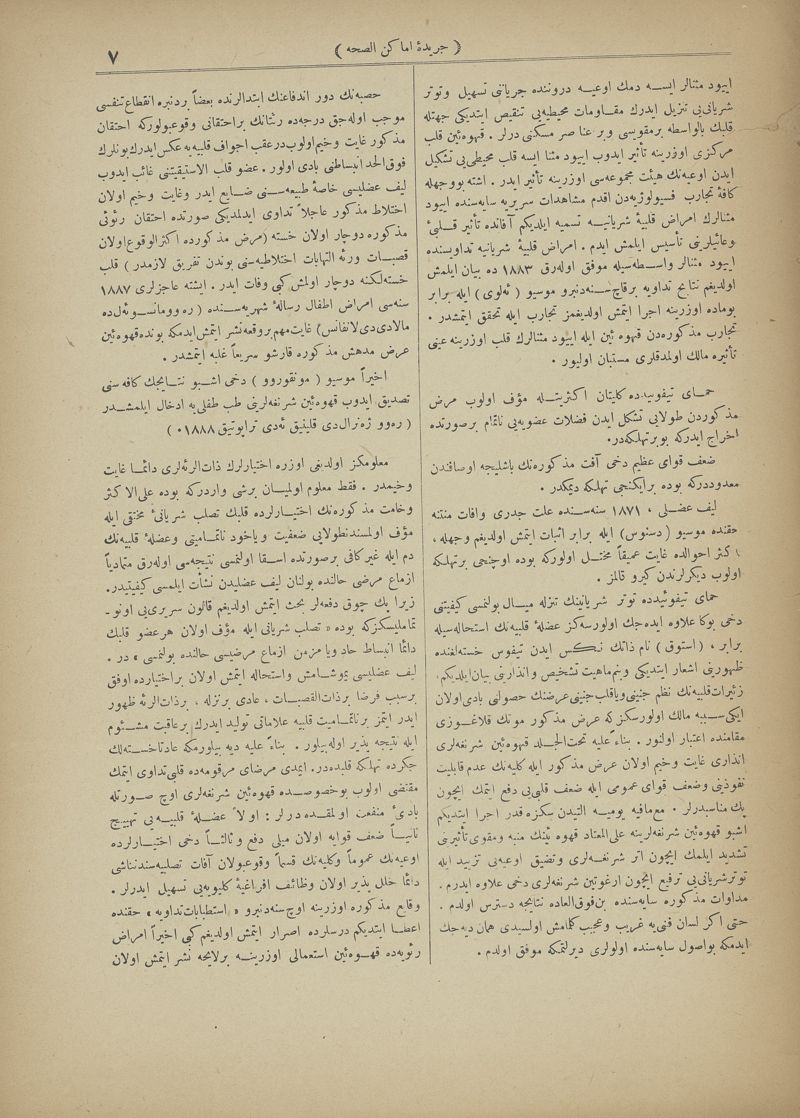 ( جریدۀ اماكن الصحه )
٧
ایبود مثنالر ایسه دمك اوعیه دروننده جریاننی تسهیل وتوتر
شریانی‌یی تنزیل ایدرك مقاومات محیطیه‌یی تنقیص ایتدیكی جهتله
قلبك بالواسطه برمقویسی وبر عناصر مسكنی درلر . قهوه‌ئین قلب
مركزی اوزرینه تأثیر ایدوب ایبود مثنا ایسه قلب محیطی‌یی تشكیل
ایدن اوعیه‌نك هیئت مجموعه‌سی اوزرینه تأثیر ایدر . اشته بووجهله
كافۀ تجارب فسیولوژیه‌دن اقدم مشاهدات سریریه سایه‌سنده ایبود
مثنالرك امراض قلبیۀ شریانیـه تسمیه ایلدیكم آفانده تأثیر قلبیۀ
وعائیلرینی تأسیس ایلمش ایدم . امراض قلبیۀ شریانیه تداویسنده
ایبود مثنالر واسطه‌سیله موفق اوله‌رق ١٨٨٣ ده بیان ایلمش
اولدیغم نتایج تداویه برقاچ سنه‌دنبرو موسیو ( ئەلوی ) ایله برابر
بوماده اوزرینه اجرا ایتمش اولدیغمز تجارب ایله تحقق ایتمشدر .
تجارب مذكوره‌دن قهوه ئین ایله ایبود مثنالرك قلب اوزرینه عینی
تأثیره مالك اولمدقلری مستبان اولیور .
حمـای تیفوئیدیده كلیتان اكثریتـله مؤف اولوب مرض
مذكوردن طولایی تشكل ایدن فضلات عضویه‌یی ناتمام برصورتده
اخراج ایدركه بوبرتهلكه‌در.
ضعف قوای عظیم دخی آفت مذكوره‌نك باشلیجه اوصافندن
معدوددركه بوده برایكنجی تهلكه دیمكدر .
لیف عضـلی ، ١٨٧١ سنه‌سنده علت جدری وافات منتنه
حقنده موسیو (دسنوس) ایله برابر اثبات ایتمش اولدیغم وجهله ،
اكثر احوالده غایت عمیقاً مختـل اولوركه بوده اوچنجی برتهلكه
اولوب دیكرلرندن كیرو قالمز .
حمای تیفوئیدده توتر شریانینك تنزله میـال بولنمسی كیفیتی
دخی بوكا علاوه ایده‌جك اولورسه‌كز عضلۀ قلبیه‌نك استحاله‌سیله
برابر ، (استوق) نام ذاتك نـكس ایدن تیفوس خسته‌لغنده
ظهورینی اشعار ایتدیكی وبنم ماهیت تشخیص وانذارنی بیان ایلدیكم
زئیرات قلبیه‌نك نظم جنینی ویاقلب جنینی عرضنك حصولنی بادی اولان
ایكی سـببه مالك اولورسكزكه عرض مذكور مونك قلاغـوزی
مقامنده اعتبار اولنور . بناءً علیه تحت‌الجـلد قهوه‌ئین شرنغه‌لری
انذاری غایت وخیم اولان عرض مذكور ایله كلیه‌نك عدم قابلیت
نفوذینی وضعف قوای عمومی ایله ضعف قلبی‌یی دفع ایتمك ایچون
پك مناسبدرلر . مع‌مافیه یومیـه التیدن سكزه قدر اجرا ایتدیكم
اشبو قهوه‌ئین شرنغه‌لرینه علی‌المعتاد قهوه ئینك منبه ومقوی تأثیرینی
تشدید ایلمك ایچون اتر شرنغـه‌لری وتضیق اوعیه‌یی تزیید ایله
توترشریانی‌یی ترفیع ایچون ارغوتین شرنغه‌لری دخی علاوه ایدرم .
مداوات مذكوره سایه‌سنده بن‌فوق‌العاده نتایجه دسترس اولدم .
حتی اكر لسان فنی‌یه غریب وعجیب كلمامش اولسیدی همان دیه‌جك
ایدمكه بواصول سایه‌سنده اولولری دیرلتمكه موفق اولدم .
حصبه‌نك دور اندفاعنك ابتدالرنده بعضاً بردنبره انقطاع تنفسی
موجب اوله‌جق درجه‌ده رئتانك براحتقانی وقوعبولوركه احتقان
مذكور غایت وخیم اولوب درعقب اجواف قلبیه‌یه عكس ایدرك بونلرك
فوق‌الحد انبساطنی بادی اولور . عضو قلب الاستیقیتنی غائب ایدوب
لیف عضلیسی خاصۀ طبیعه‌سـنی ضـایع ایدر وغایت وخیم اولان
اختلاط مذكور عاجلاً تداوی ایدلمدیكی صورتده احتقان رئوئی
مذكوره دوچار اولان خسته (مرض مذكورده اكثرالوقوع اولان
قصبـات ورئه التهابات اختلاطیه‌سنی بوندن تفریق لازمدر) قلب
خسته‌لكنه دوچار اولمش كی وفات ایدر . ایشته عاجزلری ١٨٨٧
سنه‌سی امراض اطفال رسالۀ شهریه‌سـنده ( رەوومانسـوئەل‌ده
مالادی‌دی‌لانفانس) غایت مهم بروقعه نشر ایتمش ایدمكه بونده قهوه‌ئین
عرض مدهش مذكوره قارشو سریعاً غلبه ایتمشدر .
اخیراً موسیو ( مونقوروو ) دخی اشـبو نتـایجك كافه سنی
تصدیق ایدوب قهوه‌ئین شرنغه‌لرینی طب طفلی‌یه ادخال ایلمشـدر
( رەوو ژەنرال‌دی قلینیق ئەدی تراپوتیق ١٨٨٨٠ )
معلومكز اولدیغی اوزره اختیارلرك ذات‌الرئه‌لری دائمـا غایت
وخیمدر . فقط معلوم اولمیـان برشی واردركه بوده علی‌الاكثر
وخامت مذكوره‌نك اختیـارلرده قلبك تصلب شریانئ مختقی ایله
مؤف اولمسندنطولایی ضعفیت ویاخود ناتمـامیتی وعضلۀ قلبیه‌نك
دم ایله غیركافی برصورتده اسـقا اولنمسی نتیجه‌سی اوله‌رق متمادیاً
ازماع مرضی حالنده بولنان لیف عضلیدن نشأت ایلمسی كیفیتیدر.
زیرا پك چوق دفعه‌لر بحث ایتمش اولدیغم قانون سریری‌یی اونو-
تمامالیسكزكه بوده « تصلب شریانی ایله مؤف اولان هرعضو قلبك
دائمـا انبساط حاد ویا مزمن ازماع مرضیسی حالنده بولنمسی » در .
لیف عضلیسی یموشـامش واستحاله ایتمش اولان براختیارده اوفق
برسبب فرضا برذات‌القصبـات ، عادی برنزله ، برذات‌الرئه ظهور
ایدر ایتمز برناتمـامیت قلبیه علاماتی تولید ایدرك برعاقبت مشـئوم
ایله نتیجه پذیر اوله‌بیلور . بناءً علیه دیه بیلورمكه عادتاخستـه‌لك
جكرده تهلكه قلبده‌در. ایمدی مرضای مرقومه‌ده قلبی تداوی ایتمك
مقتضی اولوب بوخصوصـده قهوه‌ئین شرنغه‌لری اوچ صـورتله
بادئ منفعت اولمقـده درلر : اولاً عضـلۀ قلبیه‌یی تهییـج
ثانیـاً ضعف قوایه اولان میلی دفع وثالثـاً دخی اختیـارلرده
اوعیه‌نك عموماً وكلیه‌نك قسماً وقوعبولان آفات تصلبیه‌سندنناشی
دائما خلل پذیر اولان وظائف افراغیۀ كلیویه‌یی تسهیل ایدرلر .
وقایع مذكوره اوزرینه اوچ سنه‌دنبرو « استطبابات تداویه » حقنده
اعطـا ایتدیكم درسلرده اصرار ایتمش اولدیغم كی اخیراً امراض
رئویه‌ده قهـوه‌ئین استعمالی اوزرینـه برلایحه نشر ایتمش اولان